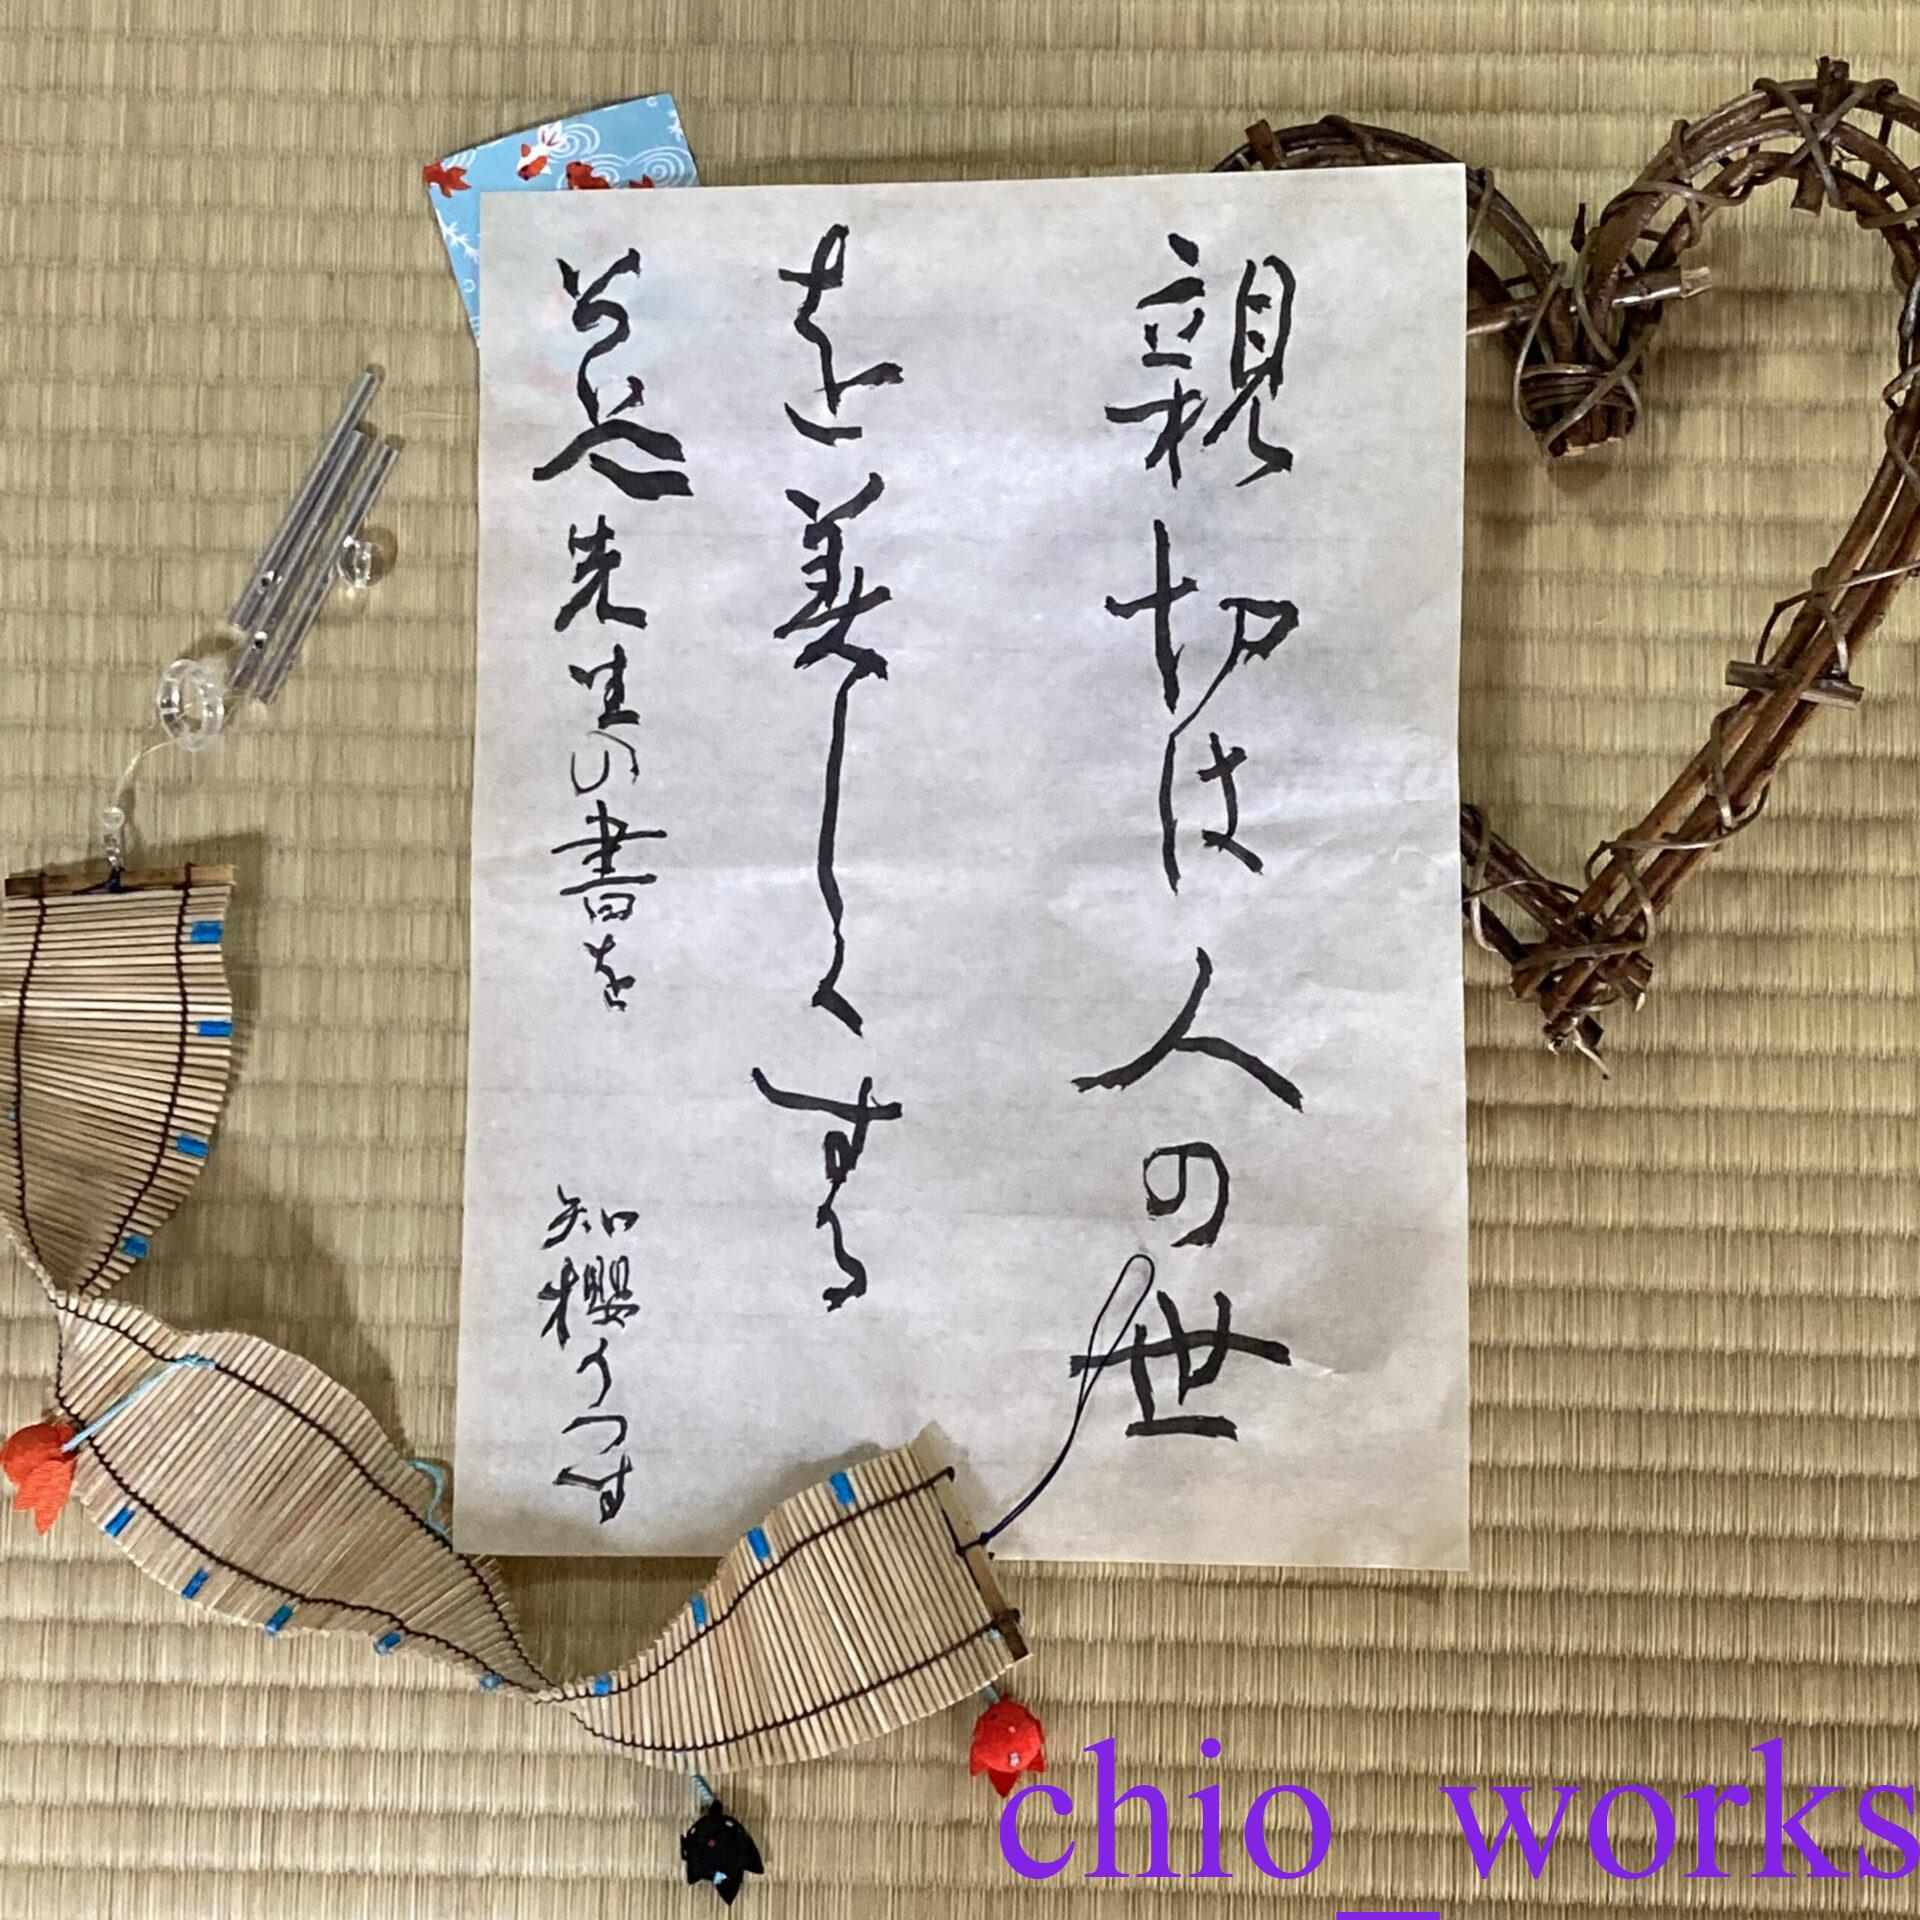 親切は人の世
を美しくする
谷先生の書を
知櫻うつす
chio_works